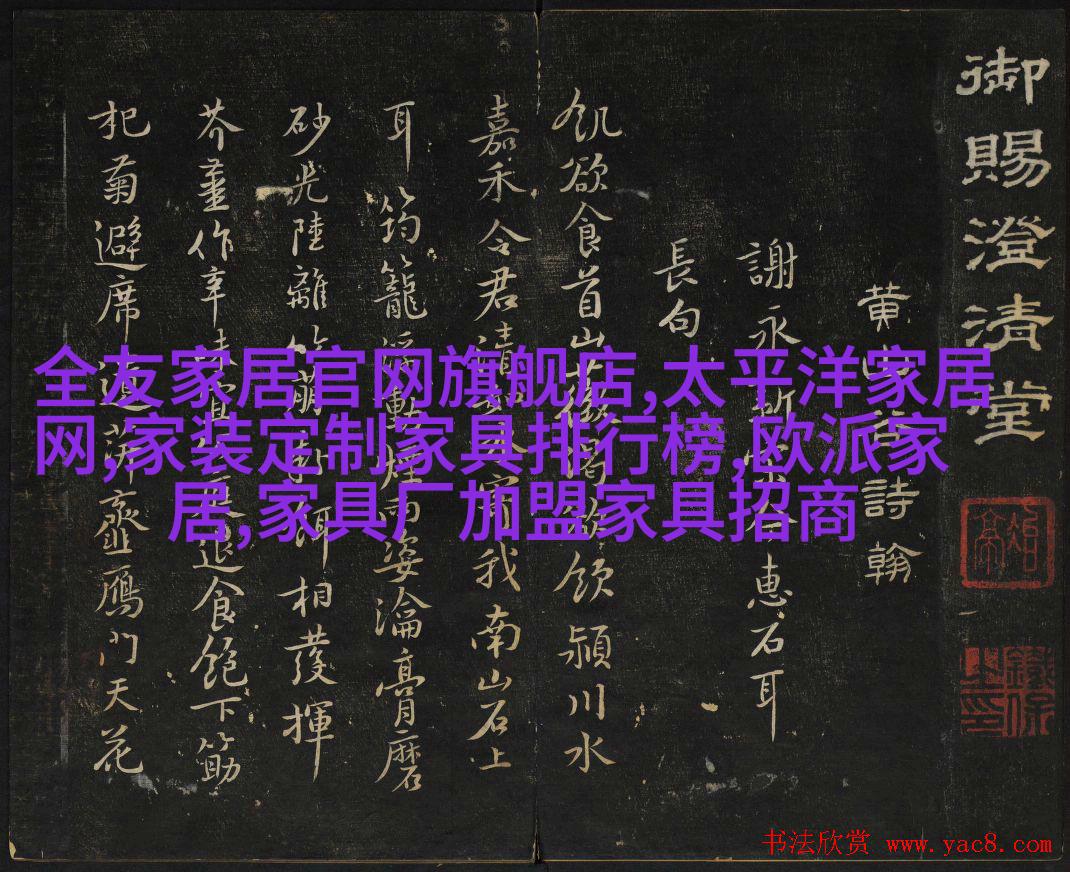 御賜澄清堂
黄山谷詩翰
謝永新惠石耳
長句
飢欲食首山薇渴欲飲潁川水
嘉禾令君清我南山石上
耳筠籠浮動煙雨姿瀹膏磨
砂光陸離竹萌餌相發揮
芥薑作辛退食飽下筯
杞菊避席遺萍虀鴈門天花
全友家居官网旗舰店,太平洋家居
网,家装定制家具排行榜,欧派家
居,家具厂加盟家具招商
书法欣赏 www.yac8.com